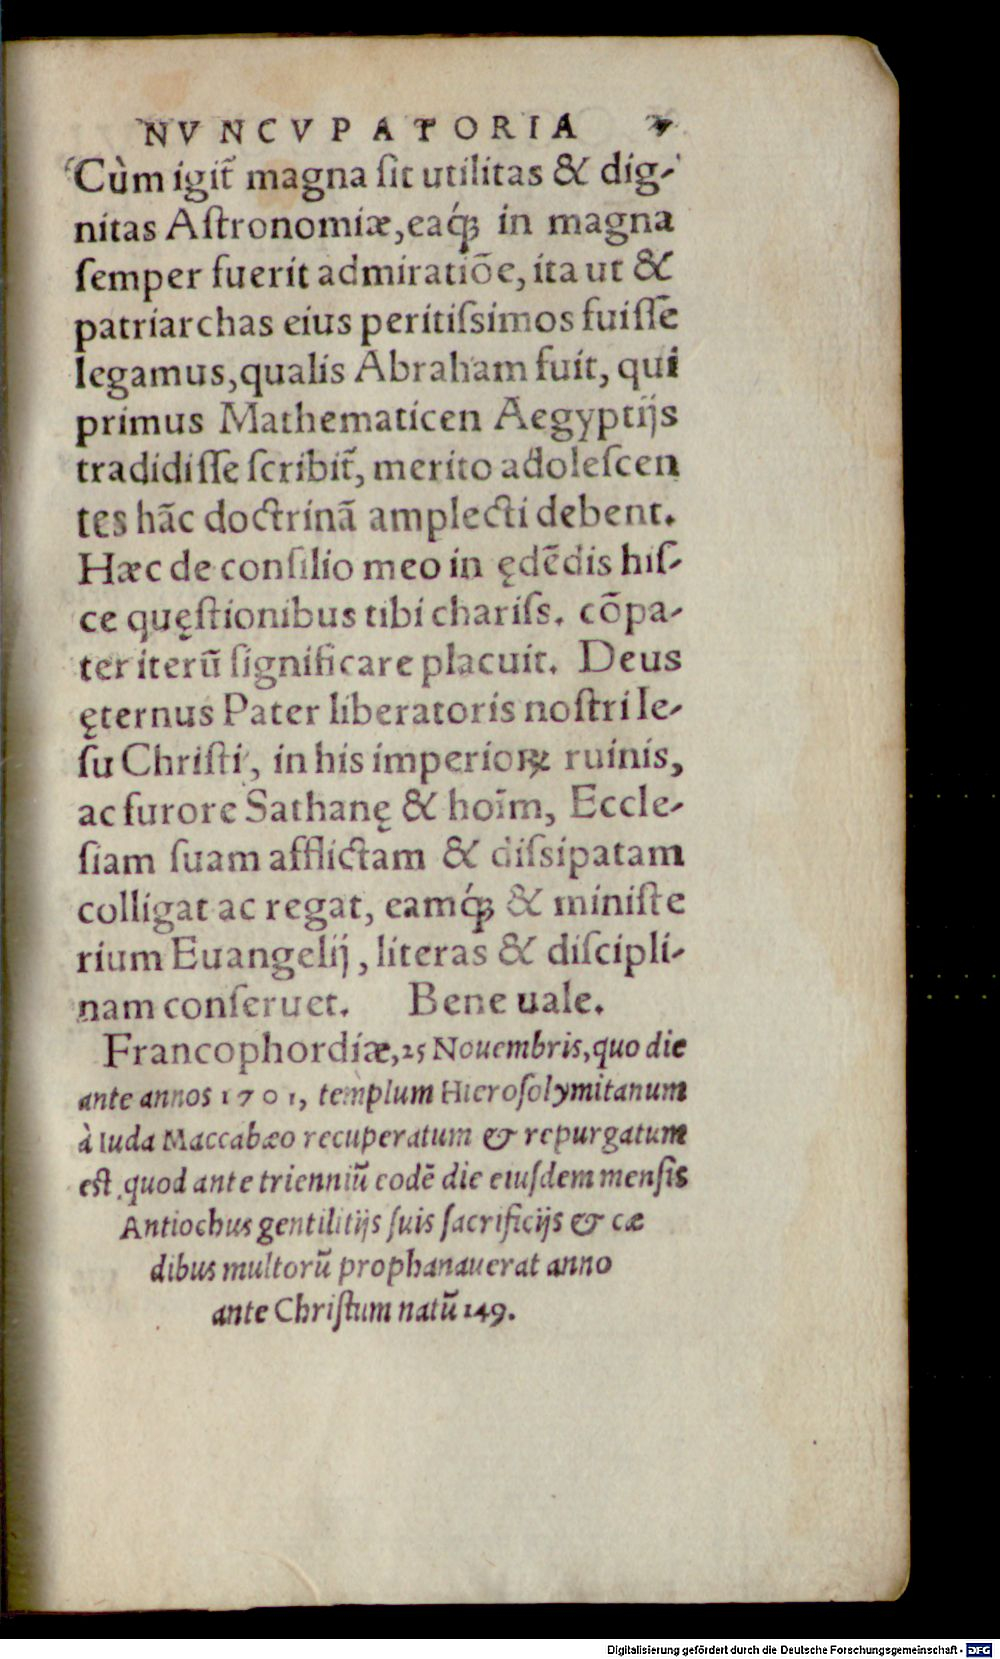 NVNCVPATORIA
Cùm igit̃ magna ſit utilitas & dig-
nitas Aſtronomiæ, eaq́ꝫ in magna
ſemper fuerit admiratiõe, ita ut &
patriarchas eius peritiſsimos fuiſſe
legamus, qualis Abraham fuit, qui
primus Mathematicen Aegyptijs
tradidiſſe ſcribit̃, merito adoleſcen
tes hãc doctrinã amplecti debent.
Hæc de conſilio meo in ędẽdis hiſ-
ce quęſtionibus tibi chariſs. cõpa-
ter iterũ ſignificare placuit. Deus
ęternus Pater liberatoris noſtri Ie-
ſu Chriſti, in his imperioꝝ ruinis,
ac furore Sathanę & hoĩm, Eccle-
ſiam ſuam afflictam & diſsipatam
colligat ac regat, eamq́ꝫ & miniſte
rium Euangelij, literas & diſcipli-
nam conſeruet. Bene uale.
Francophordiæ, 25 Nouembris, quo die
ante annos 1701, templum Hieroſolymitanum
à Iuda Maccabæo recuperatum & repurgatum
eſt, quod ante trienniũ eodẽ die eiuſdem menſis
Antiochus gentilitijs ſuis ſacrificijs & cæ
dibus multorũ prophanauerat anno
ante Chriſtum natũ 149.
Digitalisierung gefördert durch die Deutsche Forschungsgemeinschaft - DFG